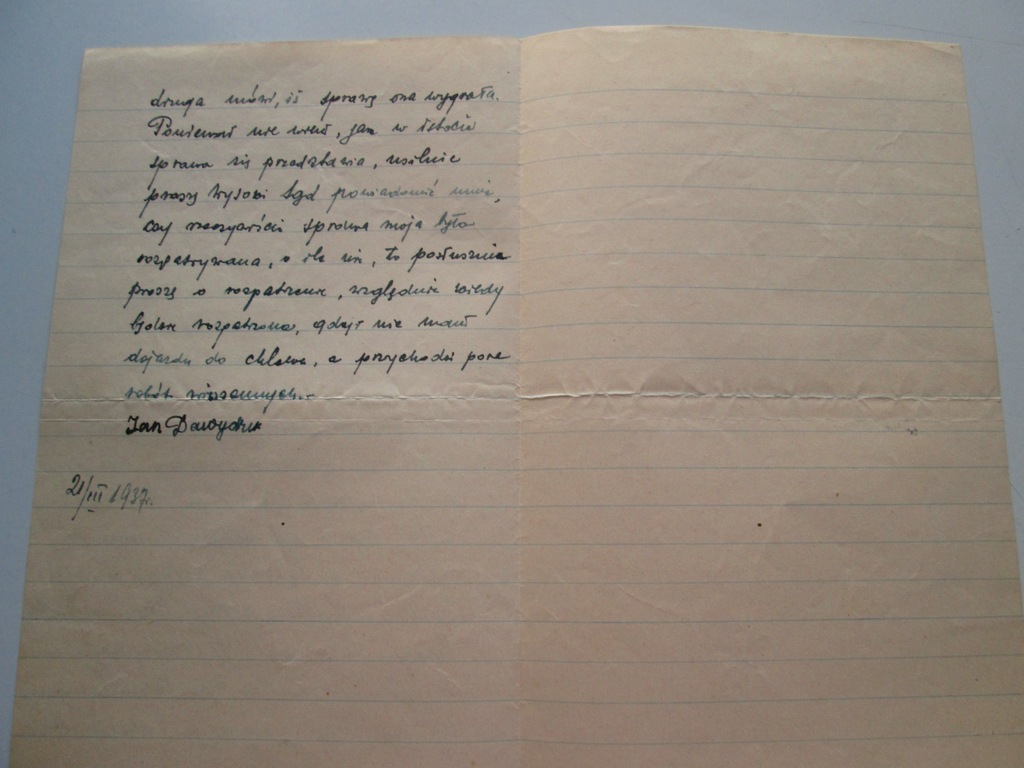 druga mówi, iż sprawę ona wygrała.
Ponieważ nie wiem, jak w istocie
sprawa się przedstawia, usilnie
proszę Wysoki Sąd powiadomić mnie,
czy rzeczywiście sprawa moja była
rozpatrywana, o ile nie, to posłusznie
proszę o rozpatrzenie, względnie kiedy
będzie rozpatrzona, gdyż nie mam
dojazdu do, a przychodzi pora
robót wiosennych.-
Jan Dawydziuk
21/III 1937r.